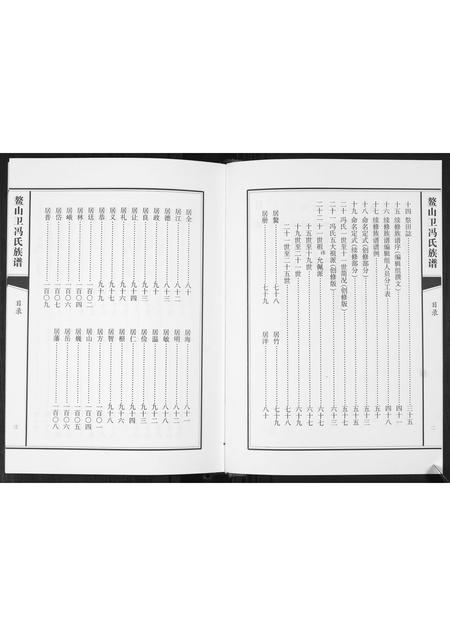 鳌山卫冯氏族谱
目录
十四 祭田誌……三十五
十五 续修族谱序(编辑组撰文)……四十一
十六 续修族谱编辑组人员分工表……四十八
十七 续修族谱谱例……五十
十八 命名定式(创修部分)……五十三
十九 命名定式(续修部分)……五十五
二十 冯氏一世至十一世简况(创修版)……五十七
二十一 冯氏五大祖派(创修版)……六十三
二十二 十一世祖 允佩派……六十七
十五世至十九世……六十七
十九世至二十一世……七十七
二十一世至二十五世……七十八
居鳌……七十八
居竹……七十九
居册……七十九
居洋……八十
二
鳌山卫冯氏族谱
目录
居全……八十
居海……八十一
居江……八十二
居明……八十二
居德……八十三
居敏……八十八
居政……九十一
居温……九十二
居良……九十三
居俭……九十三
居让……九十四
居仁……九十四
居礼……九十六
居根……九十六
居义……九十七
居智……九十八
居恭……九十九
居方……一百〇一
居廷……一百〇二
居山……一百〇四
居林……一百〇四
居巍……一百〇五
居峨……一百〇六
居岳……一百〇六
居岱……一百〇七
居藩……一百〇八
居普……一百〇九